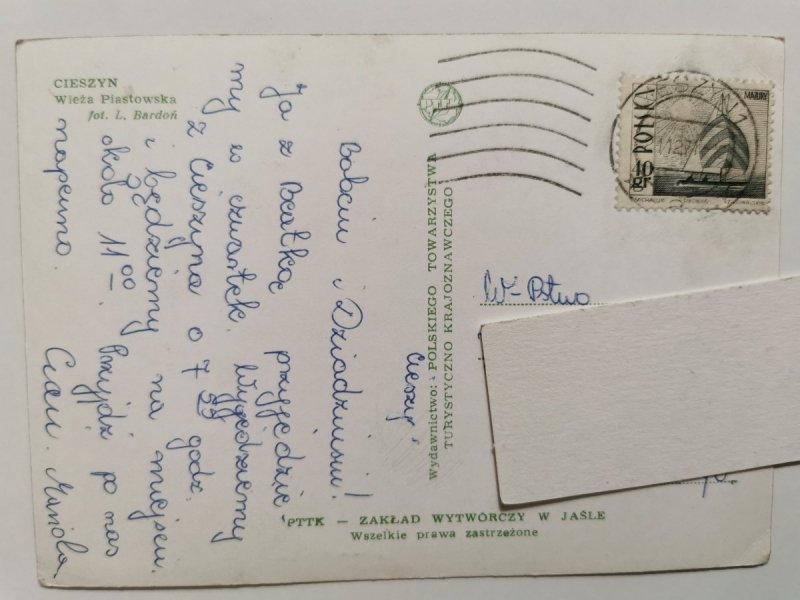 CIESZYN
Wieża Piastowska
fot. L. Bardoń
Babciu i Dziadziusiu!
Ja z Beatką przyjedzie
my w czwartek. Wyjedziemy
z Cieszyna o 7 55 godz.
i będziemy na miejscu
około 11 00. Przyjdź po nas
napewno. Ciau. Mariola
Cieszyn
Wydawnictwo: POLSKIEGO TOWARZYSTWA
TURYSTYCZNO KRAJOZNAWCZEGO
PTTK — ZAKŁAD WYTWÓRCZY W JAŚLE
Wszelkie prawa zastrzeżone
POLSKA
10 GR
MAZURY
W-Pstwo